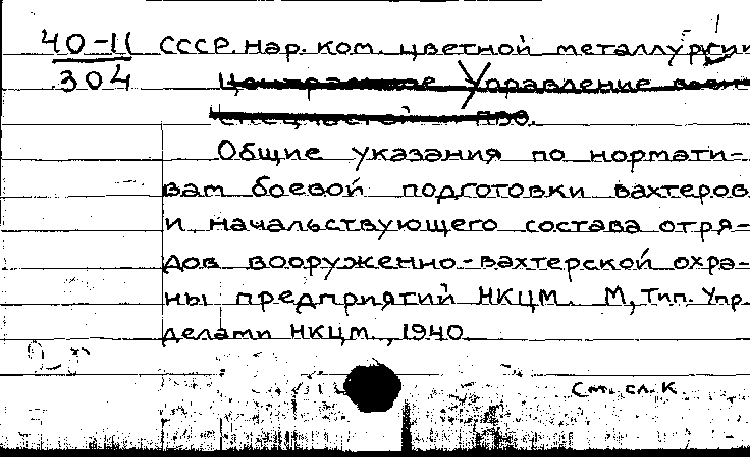 40-11 СССР. Нар. ком. цветной металлургии
304 Центральное Управление
ПВО.
Общие указания по нормати-
вам боевой подготовки вахтеров
и начальствующего состава отря-
дов вооруженно-вахтерской охра-
ны предприятий НКЦМ. М, Тип. Упр.
делами НКЦМ., 1940.
См. сл. К.